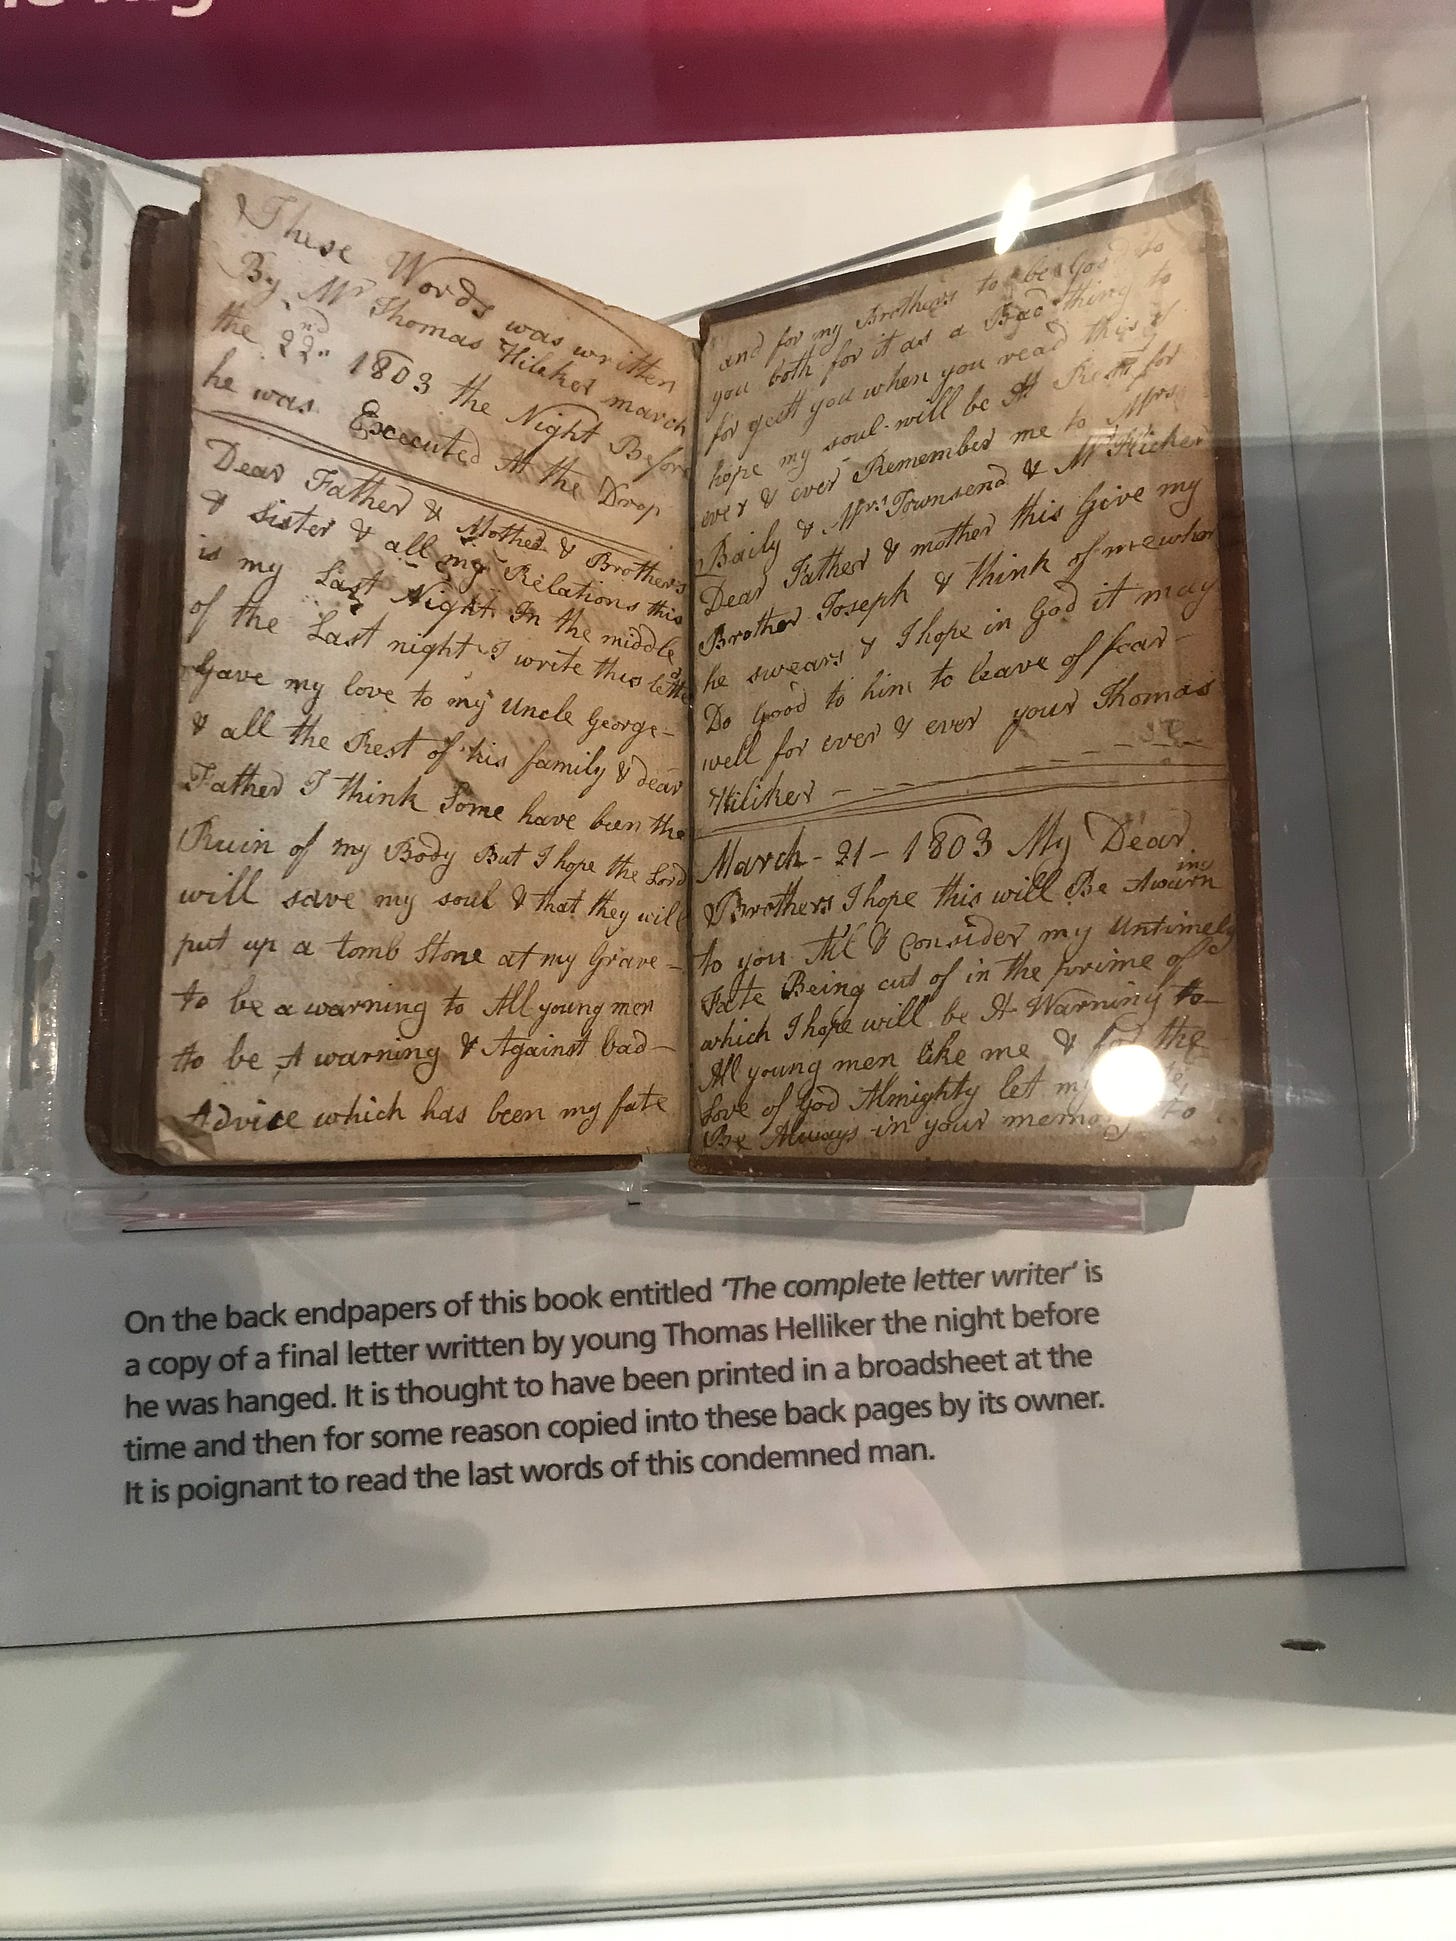 These Words was written
By Mr Thomas Hiliker march
the 22nd 1803 the Night Before
he was Excecuted At the Drop
Dear Father & Mother & Brothers
& sister & all my Relations this
is my Last Night In the middle
of the Last night I write this letter
Gave my love to my Uncle George
& all the Rest of his family & dear
Father I think Some have been the
Ruin of my Body But I hope the Lord
will save my soul & that they will
put up a tomb Stone at my Grave
to be a warning to All young men
to be A warning & Against bad
Advice which has been my fate
and for my Brothers to be Good to
you both for it as a Bad thing to
for gett you when you read this I
hope my soul will be At Rest for
ever & ever Remember me to Mrs
Baily & Mrs Townsend & Mr
Dear Father & mother this Give my
Brother Joseph & think of me when
he swears & I hope in God it may
Do Good to him to leave of fear
well for ever & ever your Thomas
Hiliker
March - 21 - 1803 My Dear
Brothers I hope this will Be Awarn
ing
to you All & Consider my Untimely
Fate Being cut of in the prime of
which I hope will be A Warning to
All young men like me & for the
Love of God Almighty let my
Be Always in your memory to
On the back endpapers of this book entitled 'The complete letter writer' is
a copy of a final letter written by young Thomas Helliker the night before
he was hanged. It is thought to have been printed in a broadsheet at the
time and then for some reason copied into these back pages by its owner.
It is poignant to read the last words of this condemned man.